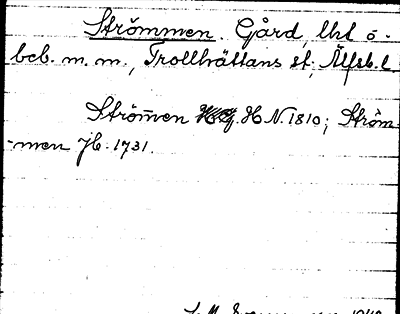 Strömmen. Gård, lht o.
beb. m. m., Trollhättans st; Älfsb. l.
Ström̄en H. N. 1810; Ström-
-men Jb. 1731.